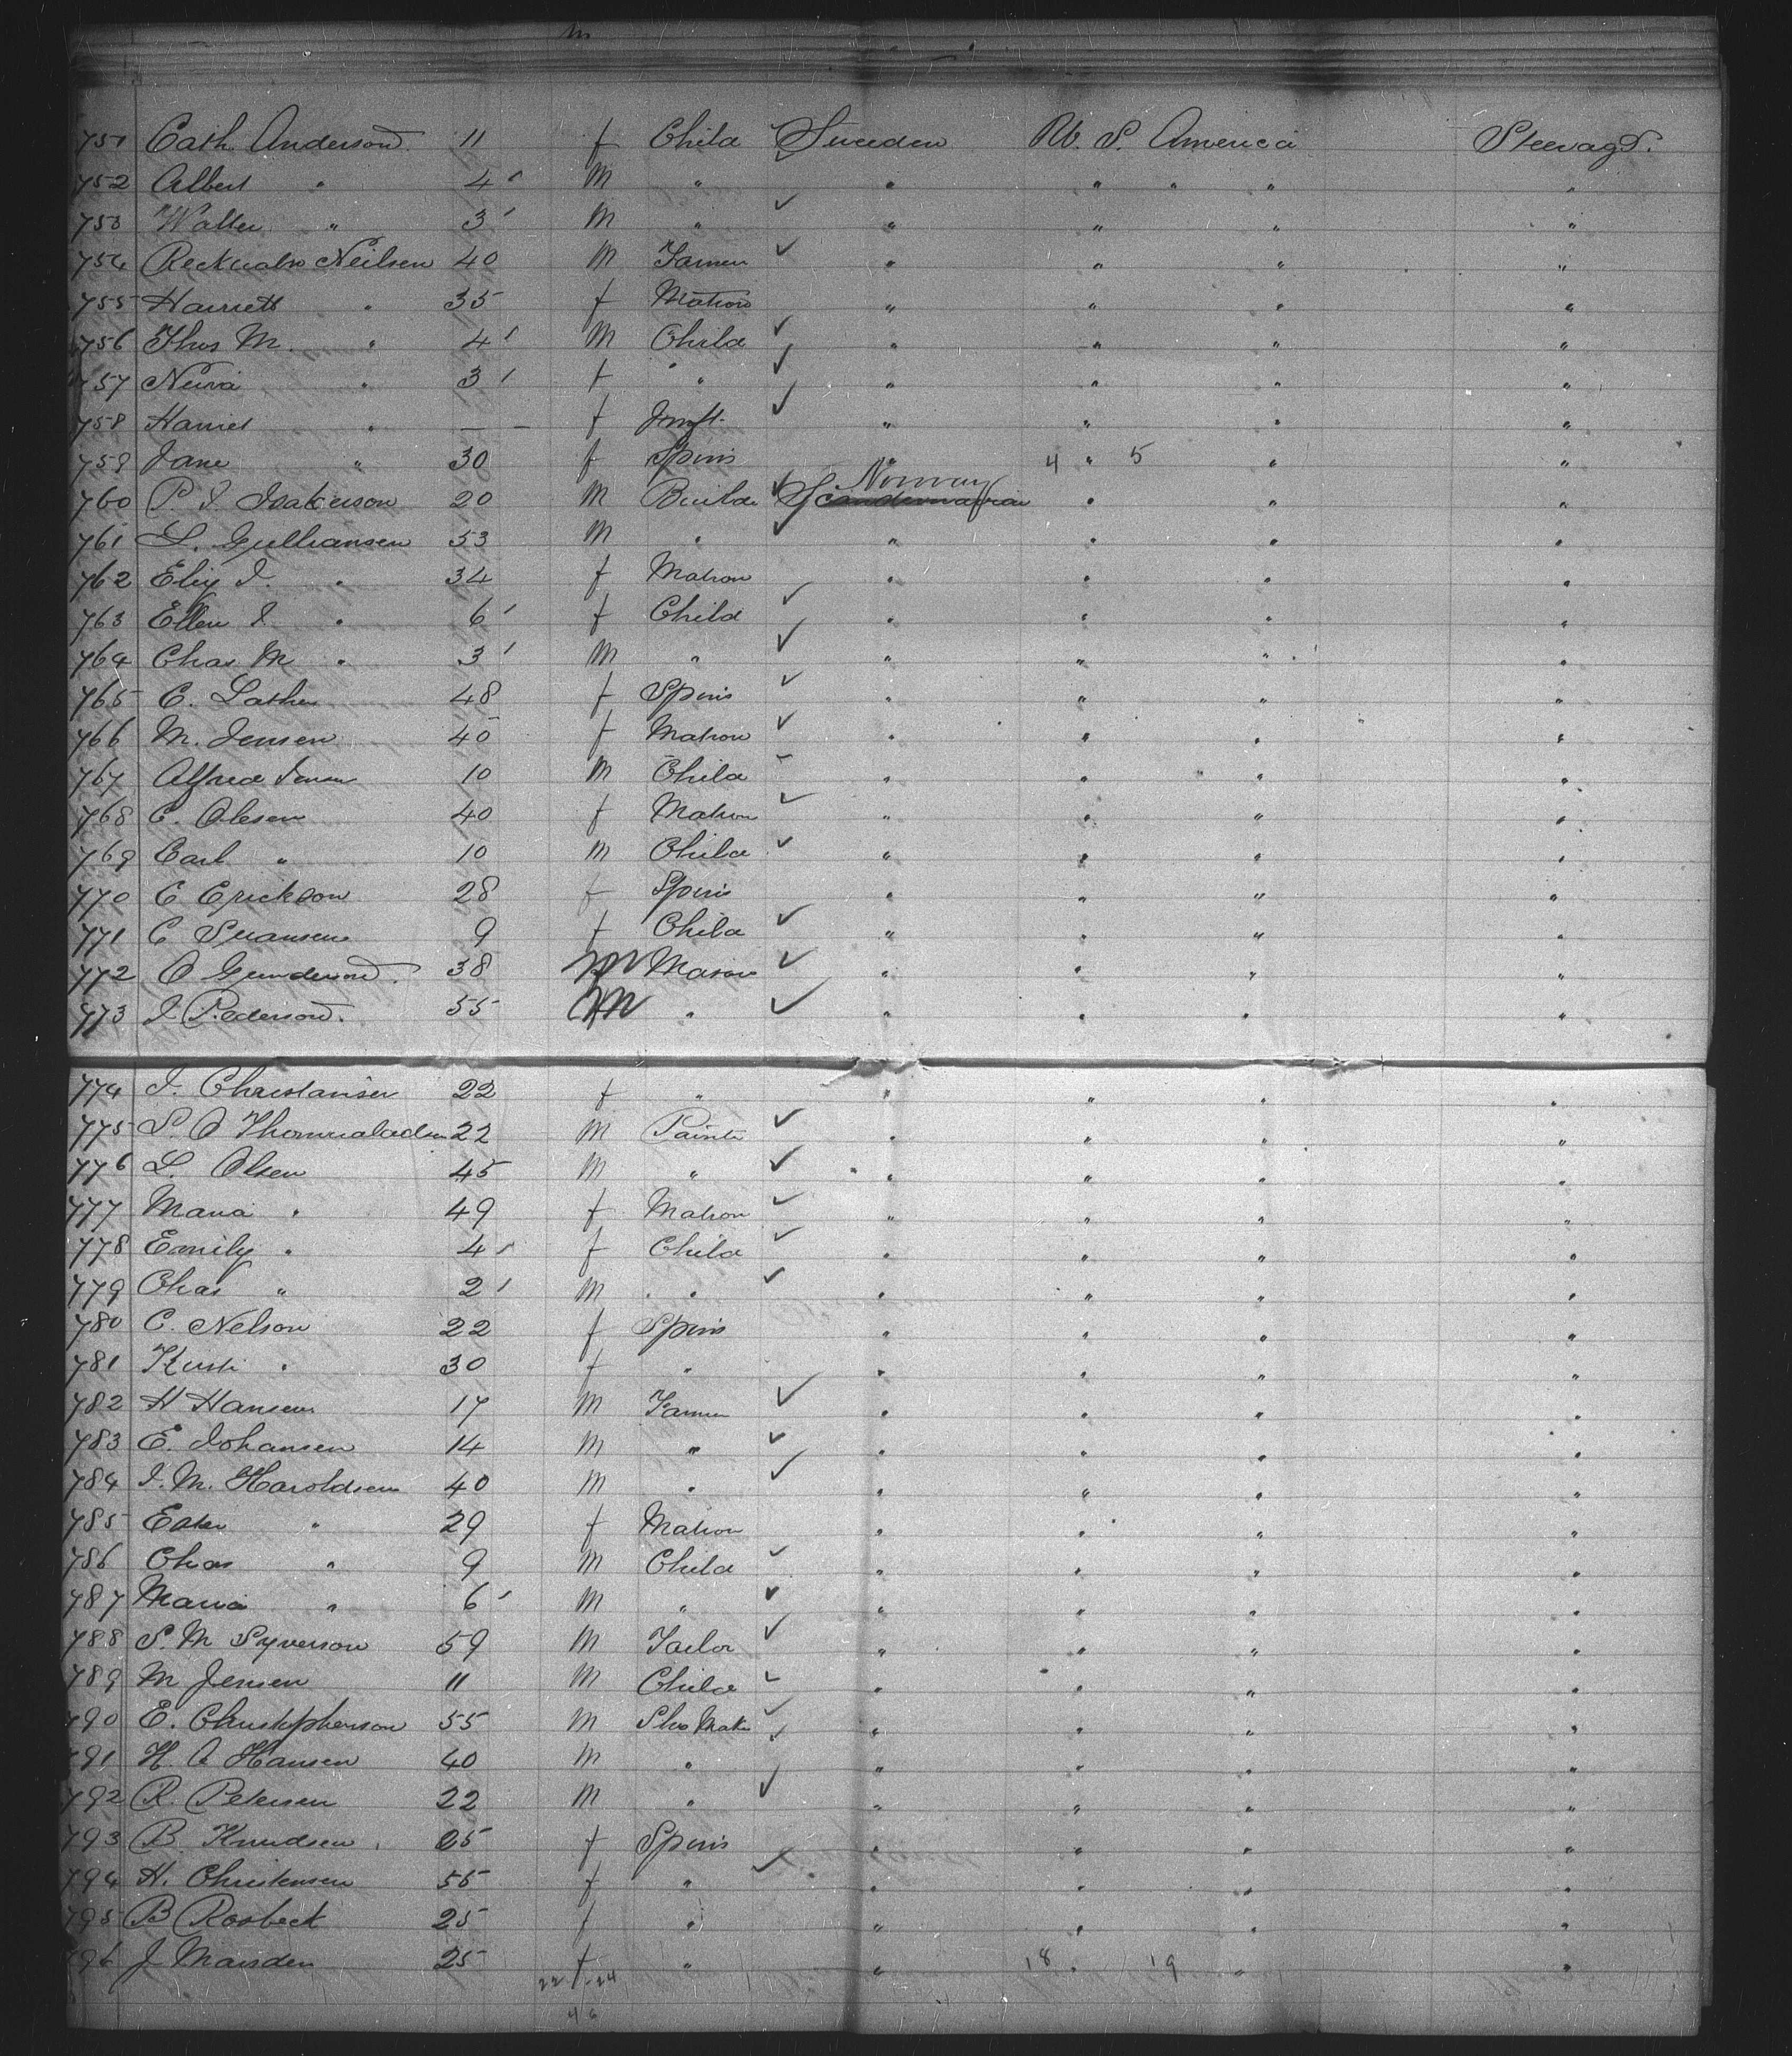 m
751 Cath Anderson 11 f Child Sweden U. S. America Steerage.
752 Albert " 4 M " " " " " "
753 Walter " 3 M " " " " "
754 Neilsen 40 M Farmer " " " "
755 Harriett " 35 f Matron " " " "
756 Thos M. " 4 M Child " " " "
757 " 3 f " " " " "
758 Harriet " — – f Inft. " " " "
759 Jane " 30 f Spins " 4 " 5 " "
Norway
760 P. I. Isakerson 20 M Builde Scandernavian " " "
761 L. Gullhansen 53 M " " " " "
762 Eliz I. " 34 f Matron " " " "
763 Ellen I. " 6 f Child " " " "
764 Chas M " 3 M " " " " "
765 C. Lather 48 f Spins " " " "
766 M. Jensen 40 f Matron " " " "
767 Alfred Jensen 10 M Child " " " "
768 C. Olesen 40 f Matron " " " "
769 Carl " 10 M Child " " " "
770 C Erickson 28 f Spins " " " "
771 C Suansen 9 f Child " " " "
772 O Gunderson. 38 M Mason " " " "
773 I Pederson. 55 M " " " " "
774 I. Christansen 22 f " " " " "
775 S. O 22 M Painte " " " "
776 L. Olsen 45 M " " " " "
777 Maria " 49 f Matron " " " "
778 Emily " 4 f Child " " " "
779 Chas " 2 M " " " " "
780 C. Nelson 22 f Spins " " " "
781 Kirsti " 30 f " " " " "
782 H Hansen 17 M Farmer " " " "
783 E. Johansen 14 M " " " " "
784 I. M. Haroldsen 40 M " " " " "
785 Ester " 29 f Matron " " " "
786 Chas " 9 M Child " " " "
787 Maria " 6 M " " " " "
788 S. M Syverson 59 M Tailor " " " "
789 M Jensen 11 M Child " " " "
790 E. Christopherson 55 M Shoe Make " " " "
791 H. A Hansen 40 M " " " " "
792 R. Petersen 22 M " " " " "
793 B. Knudsen 25 f Spins " " " "
794 H. Christensen 55 f " " " " "
795 B Rosbeck 25 f " " " " "
796 J Marsden 25 f " " 18 " 19 " "
22 - 24
46